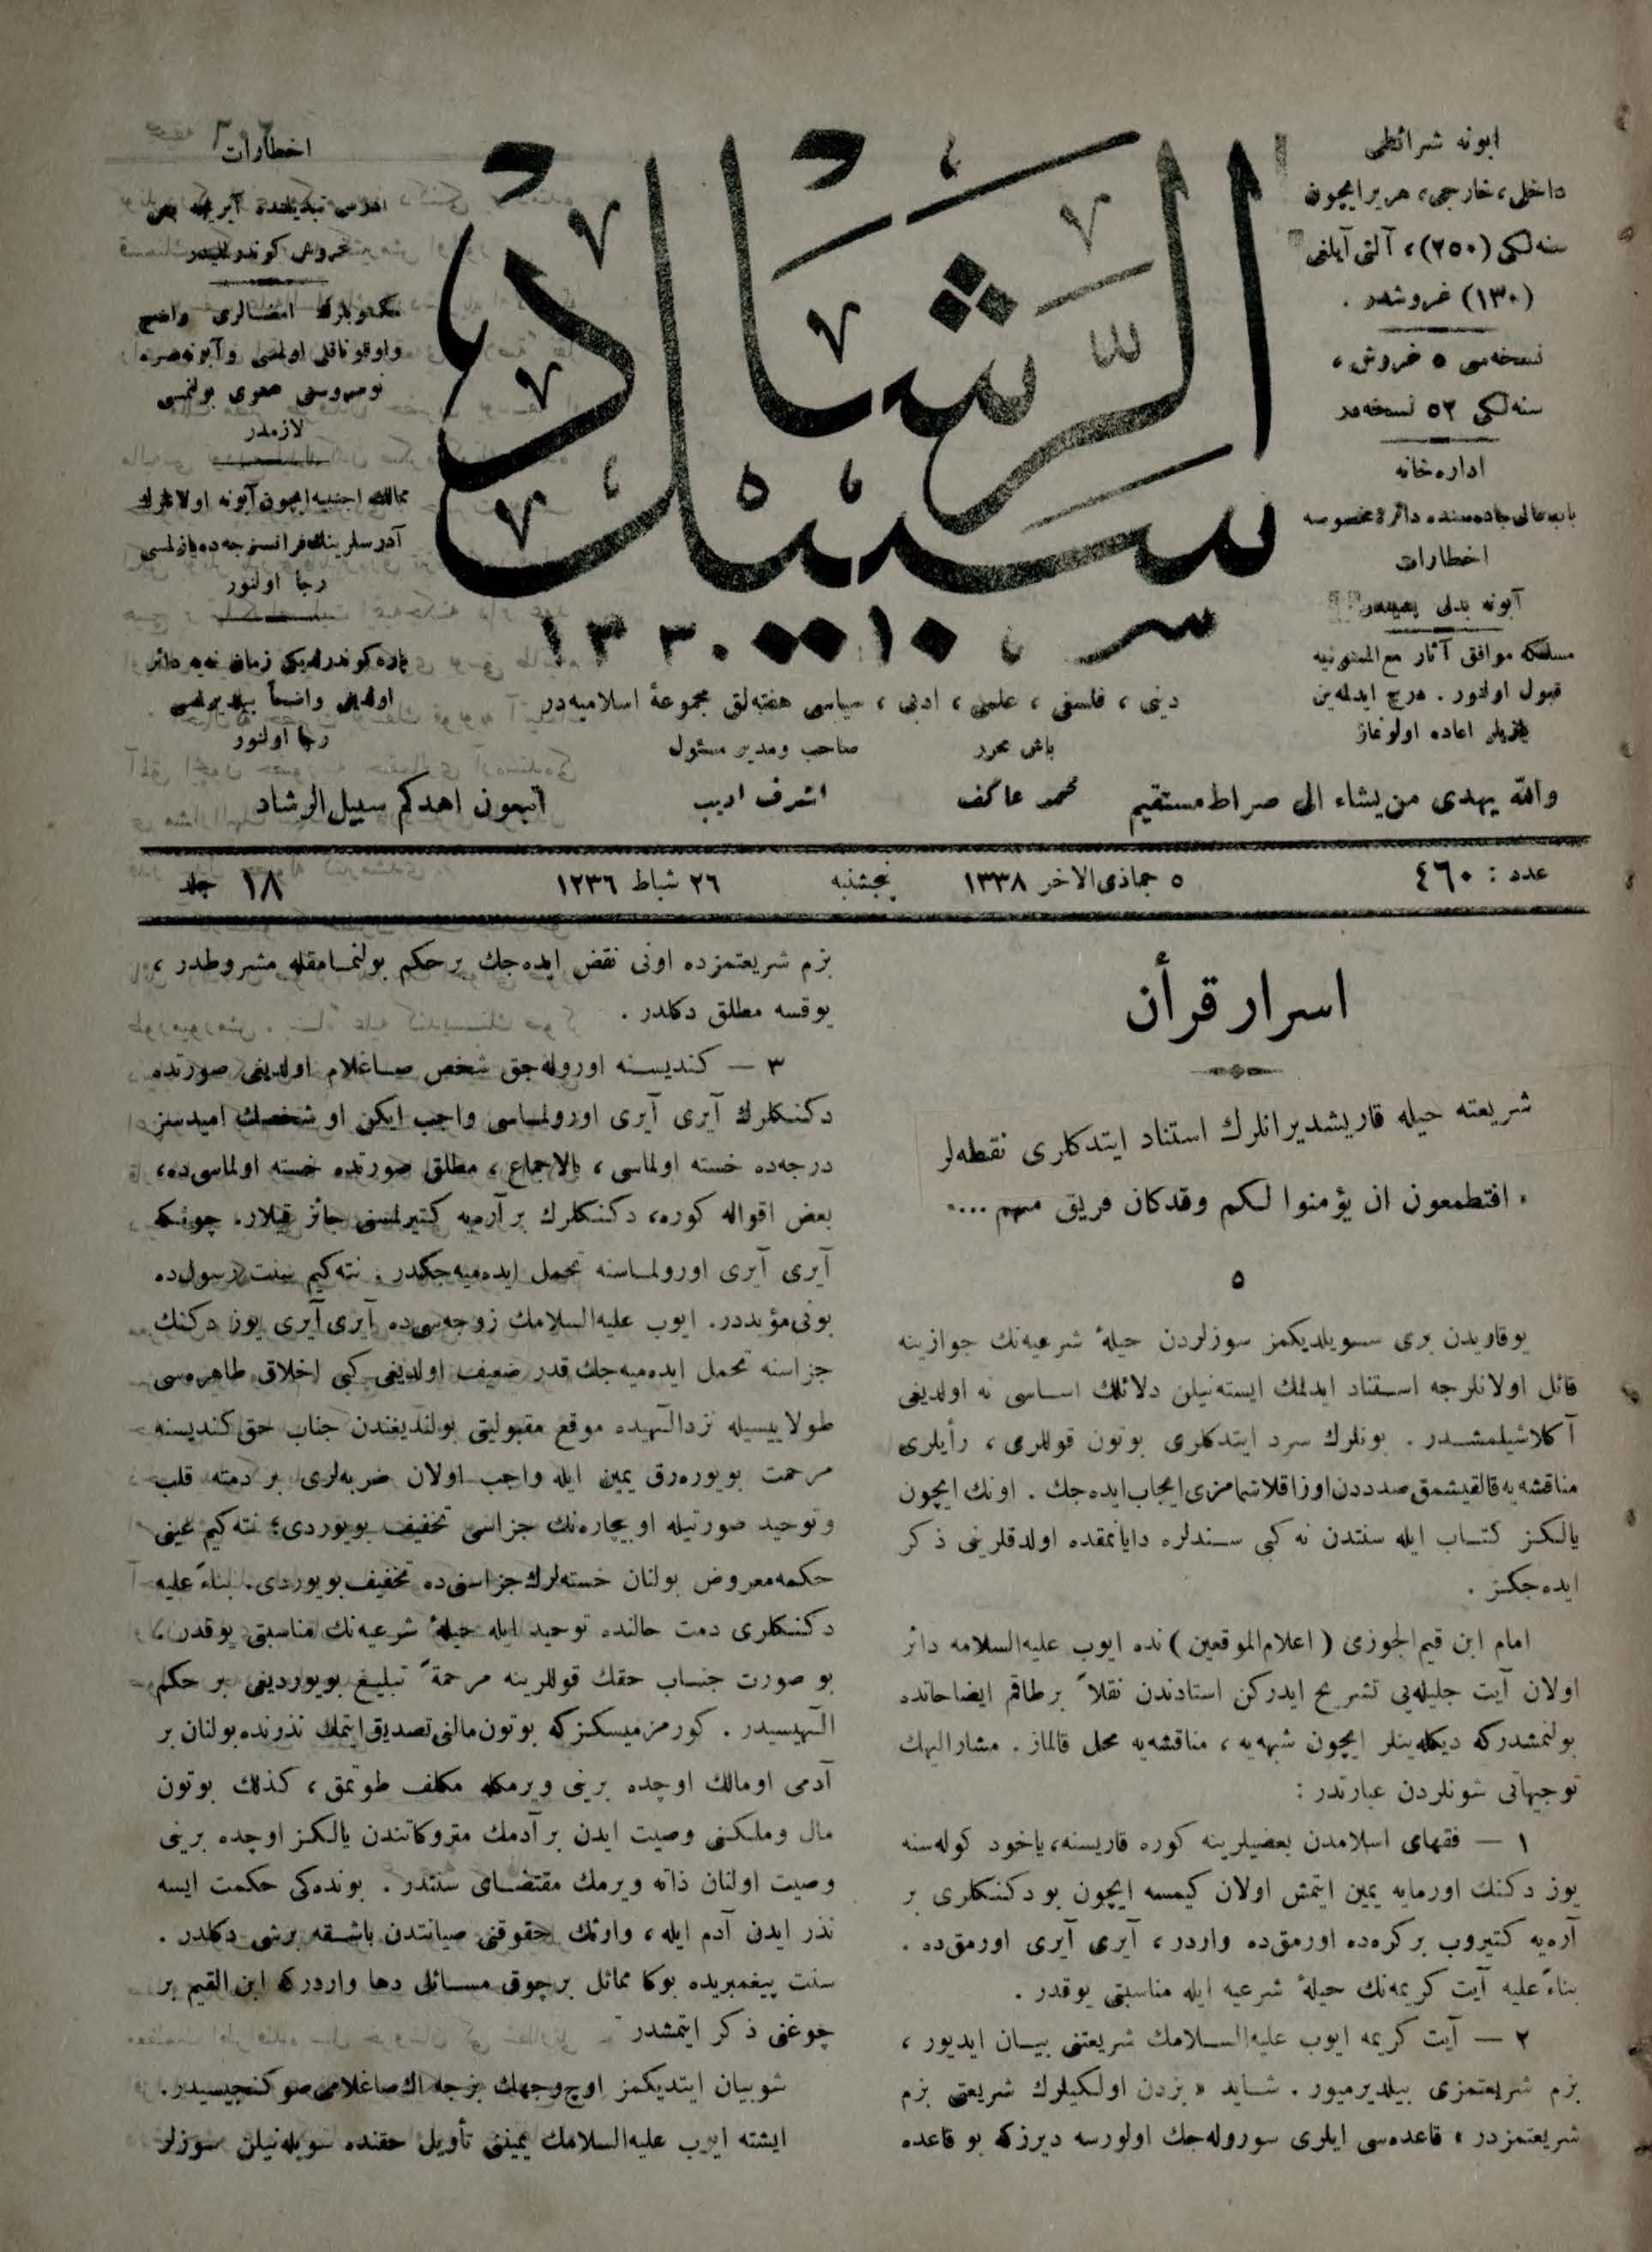 ابونه شرائطی
داخلی، خارجی، هر یر ایچون
سنه‌لکی (٢٥٠)، آلتی آیلغی
(١٣٠) غروشدر .
نسخه‌سی ٥ غروش،
سنه‌لکی ٥٢ نسخه‌در
اداره‌خانه
باب‌عالی جاده‌سنده دائرهٔ مخصوصه
اخطارات
آبونه بدلی پشیندر
مسلکه موافق آثار مع‌الممنونیه
قبول اولنور . درج ایدلمه‌ین
یازیلر اعاده اولونماز
سبیل الرشاد
١٣٣٠
دینی ، فلسفی ، علمی ، ادبی ، سیاسی هفته‌لق مجموعهٔ اسلامیه‌در
باش محرر
صاحب ومدیر مسئول
محمد عاکف
اشرف ادیب
اخطارات
آدرس تبدیلنده آیریجه بش
غروش کوندرلمیدر
مکتوبلرك امضالری واضح
واوقوناقلی اولمسی وآبونه صره
نومروسنی محتوی بولنمسی
لازمدر
ممالك اجنبیه ایچون آبونه اولانلرك
آدرسلرینك فرانسزجه ده یازلمسی
رجا اولنور
پاره کوندرلدیکی زمان نه‌یه دائر
اولدیغی واضحاً بیلدیرلمسی
رجا اولنور
والله یهدی من یشاء الی صراط مستقیم
اتبعون اهدکم سبیل الرشاد
عدد : ٤٦٠
٥ جماذی‌الآخر ١٣٣٨
پنجشنبه
٢٦ شباط ١٢٣٦
جلد ١٨
اسرار قرأن
شریعته حیله قاریشدیرانلرك استناد ایتدکلری نقطه‌لر
« افتطمعون ان یؤمنوا لکم وقدکان فریق منهم ...»
٥
یوقاریدن بری سویلدیکمز سوزلردن حیلهٔ شرعیه‌نك جوازینه
قائل اولانلرجه استناد ایدلمك ایسته‌نیلن دلائلك اساسی نه اولدیغی
آکلاشیلمشدر . بونلرك سرد ایتدکلری بوتون قوللری ، رأیلری
مناقشه‌یه قالقیشمق صدددن اوزاقلاشمامزی ایجاب ایده‌جك . اونك ایچون
یالکز کتاب ایله سنتدن نه کبی سندلره دایانمقده اولدقلرینی ذکر
ایده‌جکز .
امام ابن قیم الجوزی (اعلام الموقعین) نده ایوب علیه‌السلامه دائر
اولان آیت جلیله‌یی تشریح ایدرکن استادندن نقلاً بر طاقم ایضاحانده
بولنمشدرکه دیکله‌ینلر ایچون شبهه‌یه ، مناقشه‌یه محل قالماز . مشارالیهك
توجیهاتی شونلردن عبارتدر :
١ — فقهای اسلامدن بعضیلرینه کوره قاریسنه، یاخود کوله‌سنه
یوز دکنك اورمایه یمین ایتمش اولان کیمسه ایچون بو دکنکلری بر
آره‌یه کتیروب بر کره‌ده اورمق‌ده واردر ، آیری آیری اورمق‌ده .
بناءً علیه آیت کریمه‌نك حیلهٔ شرعیه ایله مناسبتی یوقدر .
٢ — آیت کریمه ایوب علیه‌السلامك شریعتنی بیان ایدیور ،
بزم شریعتمزی بیلدیرمیور . شاید « بزدن اولکیلرك شریعتی بزم
شریعتمزدر » قاعده‌سی ایلری سوروله‌جك اولورسه دیرزکه بو قاعده
بزم شریعتمزده اونی نقض ایده‌جك بر حکم بولنمامقله مشروطدر ،
یوقسه مطلق دکلدر .
٣ — کندیسنه اوروله‌جق شخص صاغلام اولدیغی صورتده
دکنکلرك آیری آیری اورولماسی واجب ایکن او شخصك امیدسز
درجه‌ده خسته اولماسی ، بالاجماع ، مطلق صورتده خسته اولماسی‌ده،
بعض اقواله کوره، دکنکلرك بر آره‌یه کتیرلمسنی جائز قیلار. چونکه
آیری آیری اورولماسنه تحمل ایده‌میه‌جکدر . نته‌کیم سنت رسول‌ده
بونی مؤیددر. ایوب علیه‌السلامك زوجه‌سی‌ده آیری آیری یوز دکنك
جزاسنه تحمل ایده‌میه‌جك قدر ضعیف اولدیغی کبی اخلاق طاهره‌سی
طولاییسیله نزد الهیده موقع مقبولیتی بولندیغندن جناب حق کندیسنه
مرحمت بویوره‌رق یمین ایله واجب اولان ضربه‌لری بر دمته قلب
وتوحید صورتیله او بیچاره‌نك جزاسنی تخفیف بویوردی؛ نته‌کیم عینی
حکمه معروض بولنان خسته‌لرك جزاسنی‌ده تخفیف بویوردی. بناءً علیه
دکنکلری دمت حالنده توحید ایله حیلهٔ شرعیه‌نك مناسبتی یوقدر.
بو صورت جناب حقك قوللرینه مرحمةً تبلیغ بویوردیغی بر حکم
الهیسیدر . کورمزمیسکزکه بوتون مالنی تصدیق ایتمك نذرنده بولنان بر
آدمی او مالك اوچده برینی ویرمکله مکلف طوتمق ، کذلك بوتون
مال وملکنی وصیت ایدن بر آدمك متروکاتندن یالکز اوچده برینی
وصیت اولنان ذاته ویرمك مقتضای سنتدر . بونده‌کی حکمت ایسه
نذر ایدن آدم ایله، وارثك حقوقنی صیانتدن باشقه برشی دکلدر .
سنت پیغمبریده بوکا مماثل برچوق مسائل دها واردرکه ابن القیم بر
چوغنی ذکر ایتمشدر
شو بیان ایتدیکمز اوچ وجهك بزجه اك صاغلامی صوکنجیسیدر.
ایشته ایوب علیه‌السلامك یمیننی تأویل حقنده سویله‌نیلن سوزلر